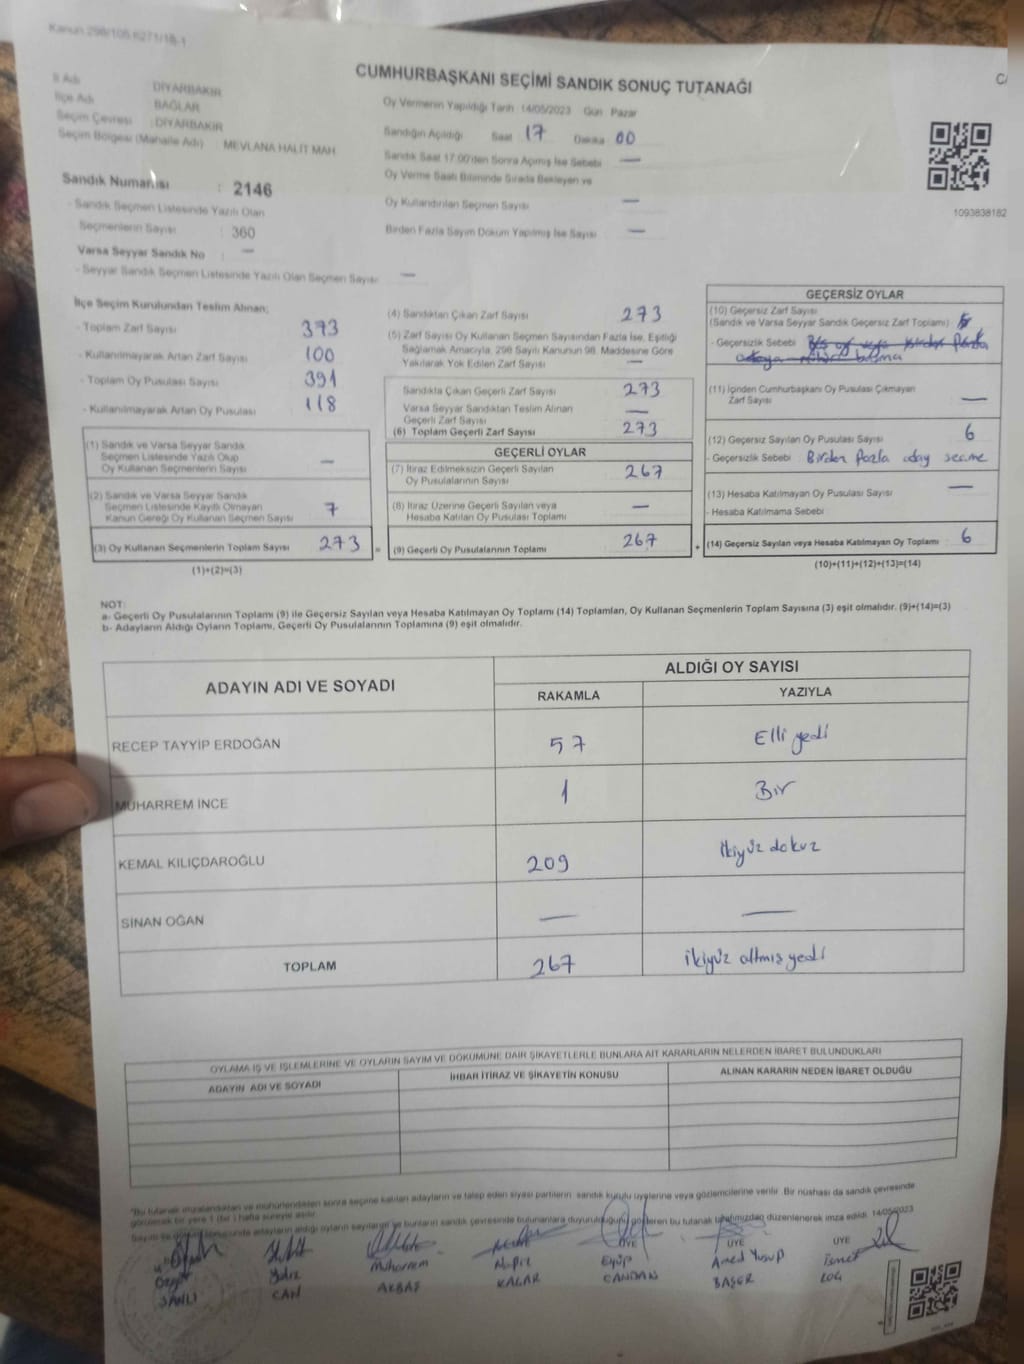 Kanun 298/105 6271/18-1
CUMHURBAŞKANI SEÇİMİ SANDIK SONUÇ TUTANAĞI
İl Adı DİYARBAKIR
İlçe Adı BAĞLAR
Seçim Çevresi : DİYARBAKIR
Seçim Bölgesi (Mahalle Adı) MEVLANA HALİT MAH.
Sandık Numarası : 2146
- Sandık Seçmen Listesinde Yazılı Olan
Seçmenlerin Sayısı : 360
Varsa Seyyar Sandık No : —
- Seyyar Sandık Seçmen Listesinde Yazılı Olan Seçmen Sayısı : —
Oy Vermenin Yapıldığı Tarih : 14/05/2023 Gün Pazar
Sandığın Açıldığı Saat 17 Dakika 00
Sandık Saat 17:00'den Sonra Açılmış İse Sebebi —
Oy Verme Saati Bitiminde Sırada Bekleyen ve
Oy Kullandırılan Seçmen Sayısı —
Birden Fazla Sayım Döküm Yapılmış İse Sayısı —
1093838182
İlçe Seçim Kurulundan Teslim Alınan;
- Toplam Zarf Sayısı 373
- Kullanılmayarak Artan Zarf Sayısı 100
- Toplam Oy Pusulası Sayısı 391
- Kullanılmayarak Artan Oy Pusulası 118
(1) Sandık ve Varsa Seyyar Sandık
Seçmen Listesinde Yazılı Olup
Oy Kullanan Seçmenlerin Sayısı —
(2) Sandık ve Varsa Seyyar Sandık
Seçmen Listesinde Kayıtlı Olmayan
Kanun Gereği Oy Kullanan Seçmen Sayısı 7
(3) Oy Kullanan Seçmenlerin Toplam Sayısı 273 =
(1)+(2)=(3)
(4) Sandıktan Çıkan Zarf Sayısı 273
(5) Zarf Sayısı Oy Kullanan Seçmen Sayısından Fazla İse, Eşitliği
Sağlamak Amacıyla, 298 Sayılı Kanunun 98. Maddesine Göre
Yakılarak Yok Edilen Zarf Sayısı —
Sandıkta Çıkan Geçerli Zarf Sayısı 273
Varsa Seyyar Sandıktan Teslim Alınan
Geçerli Zarf Sayısı —
(6) Toplam Geçerli Zarf Sayısı 273
GEÇERLİ OYLAR
(7) İtiraz Edilmeksizin Geçerli Sayılan
Oy Pusulalarının Sayısı 267
(8) İtiraz Üzerine Geçerli Sayılan veya
Hesaba Katılan Oy Pusulası Toplamı —
(9) Geçerli Oy Pusulalarının Toplamı 267 +
GEÇERSİZ OYLAR
(10) Geçersiz Zarf Sayısı
(Sandık ve Varsa Seyyar Sandık Geçersiz Zarf Toplamı)
- Geçersizlik Sebebi
(11) İçinden Cumhurbaşkanı Oy Pusulası Çıkmayan
Zarf Sayısı —
(12) Geçersiz Sayılan Oy Pusulası Sayısı 6
- Geçersizlik Sebebi Birden fazla aday seçme
(13) Hesaba Katılmayan Oy Pusulası Sayısı —
- Hesaba Katılmama Sebebi
(14) Geçersiz Sayılan veya Hesaba Katılmayan Oy Toplamı 6
(10)+(11)+(12)+(13)=(14)
NOT:
a- Geçerli Oy Pusulalarının Toplamı (9) ile Geçersiz Sayılan veya Hesaba Katılmayan Oy Toplamı (14) Toplamları, Oy Kullanan Seçmenlerin Toplam Sayısına (3) eşit olmalıdır. (9)+(14)=(3)
b- Adayların Aldığı Oyların Toplamı, Geçerli Oy Pusulalarının Toplamına (9) eşit olmalıdır.
ADAYIN ADI VE SOYADI
ALDIĞI OY SAYISI
RAKAMLA YAZIYLA
RECEP TAYYİP ERDOĞAN 57 Elli yedi
MUHARREM İNCE 1 Bir
KEMAL KILIÇDAROĞLU 209 ikiyüz dokuz
SİNAN OĞAN — —
TOPLAM 267 ikiyüz altmış yedi
OYLAMA İŞ VE İŞLEMLERİNE VE OYLARIN SAYIM VE DÖKÜMÜNE DAİR ŞİKAYETLERLE BUNLARA AİT KARARLARIN NELERDEN İBARET BULUNDUKLARI
ADAYIN ADI VE SOYADI İHBAR İTİRAZ VE ŞİKAYETİN KONUSU ALINAN KARARIN NEDEN İBARET OLDUĞU
"Bu tutanak imzalandıktan ve mühürlendikten sonra seçime katılan adayların ve talep eden siyasi partilerin sandık kurulu üyelerine veya gözlemcilerine verilir. Bir nüshası da sandık çevresinde
görülecek bir yere 1 (bir) hafta süreyle asılır.
adayların aldığı oyların sayılarını ve bunların sandık çevresinde bulunanlara duyurulduğunu gösteren bu tutanak tarafımızdan düzenlenerek imza edildi. 14/05/2023
ÜYE ÜYE ÜYE
Özgür Yıldız Muharrem Eyüp Amed Yusup İsmet
SANLI CAN AKBAŞ KALAR CANDAN BAŞER